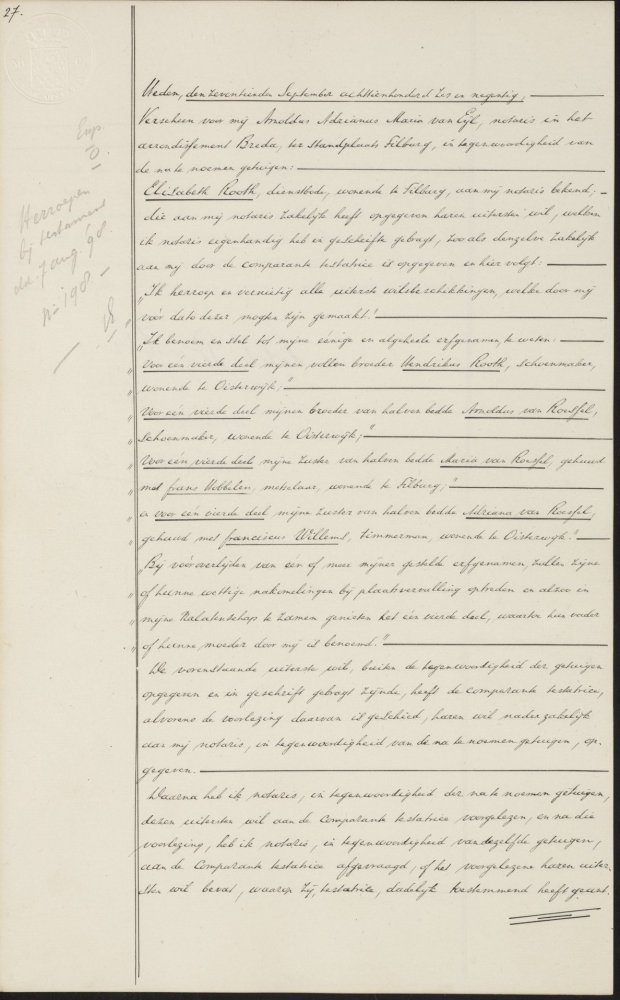 27.
Exp.
D.
Herroepen
bij testament
dd 7 aug. '98
No 198.
Heden, den zeventienden September achttienhonderd zes en negentig,
Verscheen voor mij Arnoldus Adrianus Maria van Eijl, notaris in het
arrondissement Breda, ter Standplaats Tilburg, in tegenwoordigheid van
de na te noemen getuigen:
Elisabeth Rooth, dienstbode, wonende te Tilburg, aan mij notaris bekend;
die aan mij notaris zakelijk heeft opgegeven haren uitersten wil, welken
ik notaris eigenhandig heb in geschrifte gebragt, zooals denzelve zakelijk
aan mij door de comparante testatrice is opgegeven en hier volgt:
"Ik herroep en vernietig alle uiterste wilsbeschikkingen, welke door mij
" vóór dato dezer mogten zijn gemaakt."
"Ik benoem en stel tot mijne éénige en algeheele erfgenamen, te weten:
" Voor één vierde deel mijnen vollen broeder Hendrikus Rooth, schoenmaker,
" wonende te Oisterwijk;"
" Voor één vierde deel mijnen broeder van halven bedde Arnoldus van Roessel,
" schoenmaker, wonende te Oisterwijk;"
" Voor één vierde deel mijne zuster van halven bedde Maria van Roessel, gehuwd
" met frans Wobbelen, metselaar, wonende te Tilburg;"
" en voor één vierde deel mijne zuster van halven bedde Adriana van Roessel,
" gehuwd met franciscus Willems, timmerman, wonende te Oisterwijk."
"Bij vóóroverlijden van één of meer mijner gestelde erfgenamen, zullen zijne
" of hunne wettige nakomelingen bij plaatsvervulling optreden en alzoo in
" mijne nalatenschap te zamen genieten het één vierde deel, waartoe hun vader
" of hunne moeder door mij is benoemd."
De vorenstaande uiterste wil, buiten de tegenwoordigheid der getuigen
opgegeven en in geschrift gebragt zijnde, heeft de comparante testatrice,
alvorens de voorlezing daarvan is geschied, haren wil nader zakelijk
aan mij notaris, in tegenwoordigheid van de na te noemen getuigen, op-
gegeven.
Daarna heb ik notaris, in tegenwoordigheid der na te noemen getuigen,
dezen uitersten wil aan de Comparante testatrice voorgelezen, en na die
voorlezing, heb ik notaris, in tegenwoordigheid van dezelfde getuigen,
aan de Comparante testatrice afgevraagd, of het voorgelezene haren uiter-
sten wil bevat, waarop zij, testatrice, dadelijk toestemmend heeft geant.